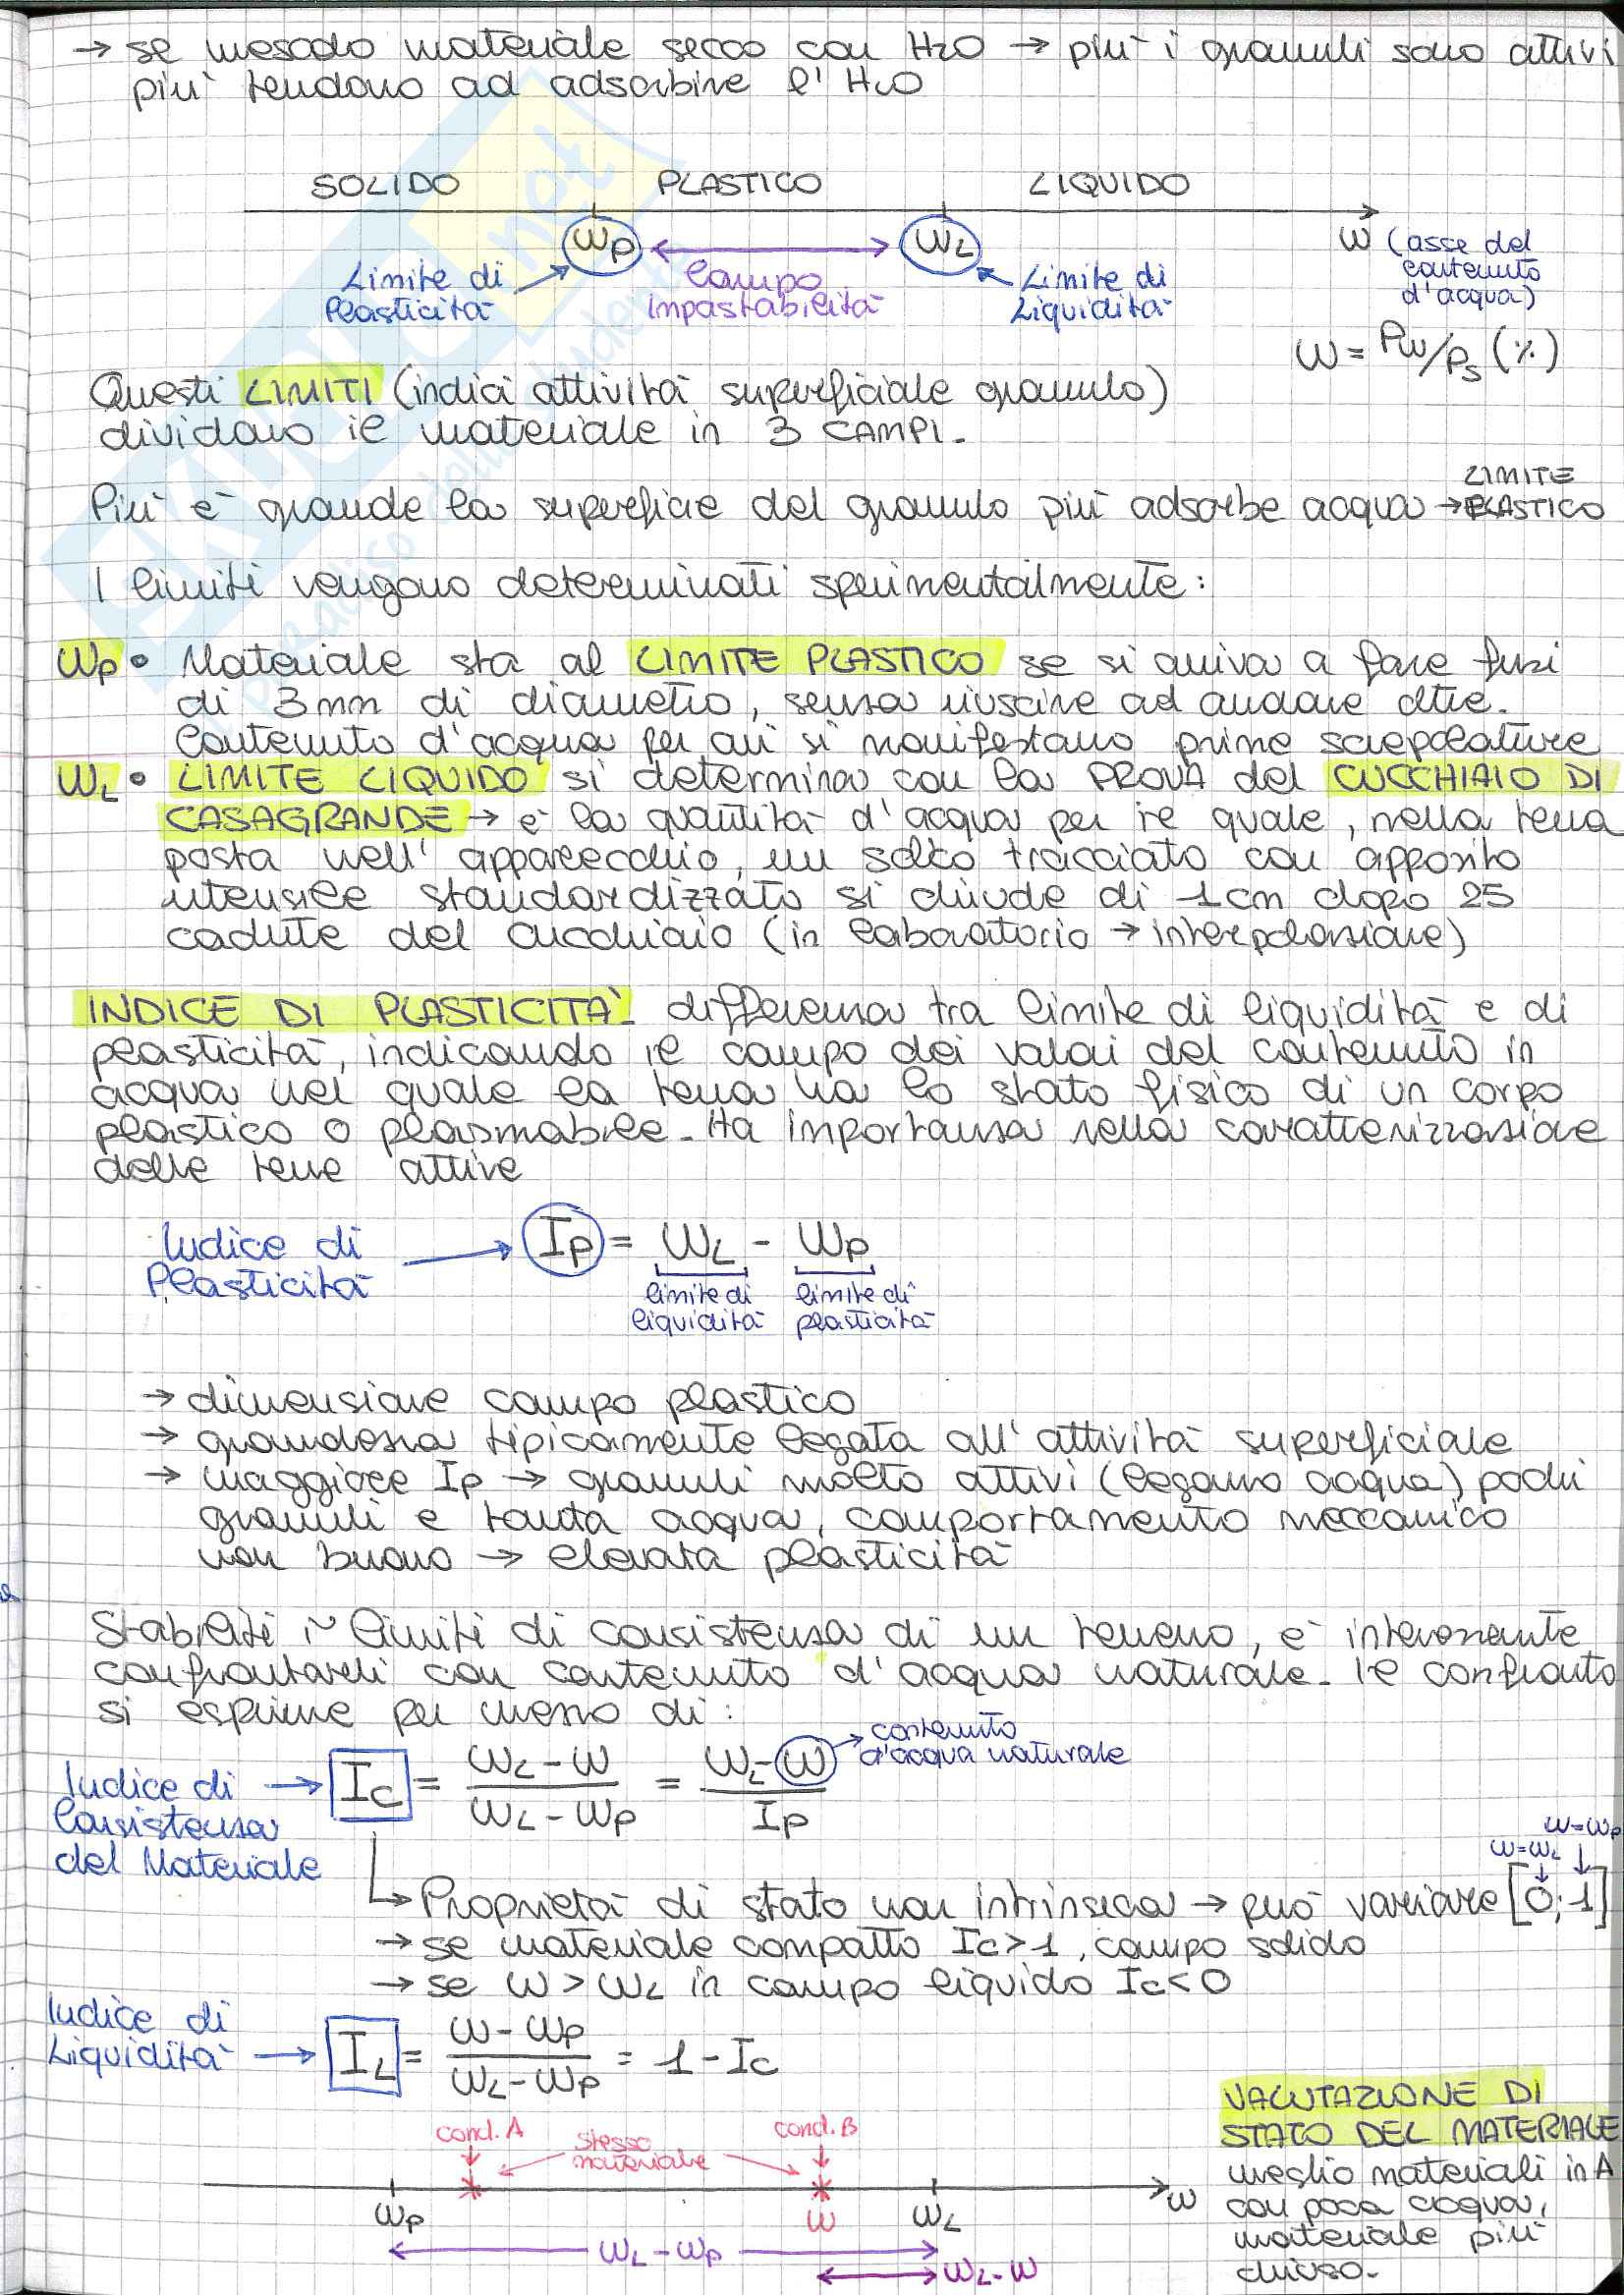 → se mescolo materiale secco con H2O → più i granuli sono attivi
più tendono ad adsorbire l' H2O
SOLIDO PLASTICO LIQUIDO
Wp WL W (asse del
contenuto
d'acqua)
Limite di
Plasticità
Campo
Impastabilità
Limite di
Liquidità
W = Pw/Ps (%)
Questi LIMITI (indici attività superficiale granulo)
dividono il materiale in 3 CAMPI.
Più è grande la superficie del granulo più adsorbe acqua → LIMITE
PLASTICO
I limiti vengono determinati sperimentalmente:
Wp • Materiale sta al LIMITE PLASTICO se si arriva a fare fusi
di 3mm di diametro, senza riuscire ad andare oltre.
Contenuto d'acqua per cui si manifestano prime screpolature
WL • LIMITE LIQUIDO si determina con la PROVA del CUCCHIAIO DI
CASAGRANDE → è la quantità d'acqua per il quale, nella terra
posta nell' apparecchio, un solco tracciato con apposito
utensile standardizzato si chiude di 1cm dopo 25
cadute del cucchiaio (in laboratorio → interpolazione)
INDICE DI PLASTICITÀ- differenza tra limite di liquidità e di
plasticità, indicando il campo dei valori del contenuto in
acqua nel quale la terra ha lo stato fisico di un corpo
plastico o plasmabile. Ha importanza nella caratterizzazione
delle terre attive
Indice di
Plasticità
→ Ip = WL - Wp
limite di
liquidità
limite di
plasticità
→ dimensione campo plastico
→ grandezza tipicamente legata all' attività superficiale
→ maggiore Ip → granuli molto attivi (legano acqua) pochi
granuli e tanta acqua, comportamento meccanico
non buono → elevata plasticità
Stabiliti i limiti di consistenza di un terreno, è interessante
confrontarli con contenuto d'acqua naturale. Il confronto
si esprime per mezzo di:
Indice di
Consistenza
del Materiale
→ Ic = WL - W / WL - Wp = WL - W / Ip
→ contenuto
d'acqua naturale
W=Wp
W=WL
→ Proprietà di stato non intrinseca → può variare [0;1]
→ se materiale compatto Ic>1, campo solido
→ se W > WL in campo liquido Ic<0
Indice di
Liquidità
→ IL = W - Wp / WL - Wp = 1 - Ic
cond. A stesso
materiale
cond. B
Wp W WL W
WL - Wp
WL - W
VALUTAZIONE DI
STATO DEL MATERIALE
meglio materiali in A
con poca acqua,
materiale più
chiuso.